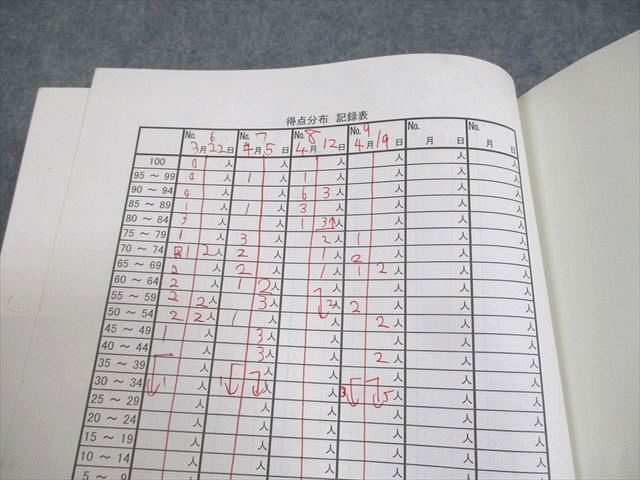 得点分布 記録表
No. 6 No. 7 No. 8 No. 9 No. No.
3月22日 4月5日 4月12日 4月19日 月 日 月 日
100 0 人 人 人 人 人 人
95 ～ 99 0 人 1 人 1 人 人 人 人
90 ～ 94 0 人 人 6 3 人 人 人 人
85 ～ 89 1 人 1 人 3 人 人 人 人
80 ～ 84 3 人 人 1 3↑ 人 人 人 人
75 ～ 79 1 人 3 人 2 人 1 人 人 人
70 ～ 74 1 2 人 2 人 1 人 2 人 人 人
65 ～ 69 2 人 2 人 1 人 1 2 人 人 人
60 ～ 64 2 人 1 2 人 人 人 人 人
55 ～ 59 2 2 人 3 人 2 人 2 人 人 人
50 ～ 54 2 2 人 1 人 人 2 人 人 人
45 ～ 49 1 人 3 人 人 人 人 人
40 ～ 44 人 3 人 人 2 人 人 人
35 ～ 39 人 人 人 人 人 人
30 ～ 34 1 人 1 人 人 3 5 人 人 人
25 ～ 29 人 人 人 人 人 人
20 ～ 24 人 人 人 人 人 人
15 ～ 19 人 人 人 人 人 人
10 ～ 14 人 人 人 人 人 人
5 ～ 9 人 人 人 人 人 人